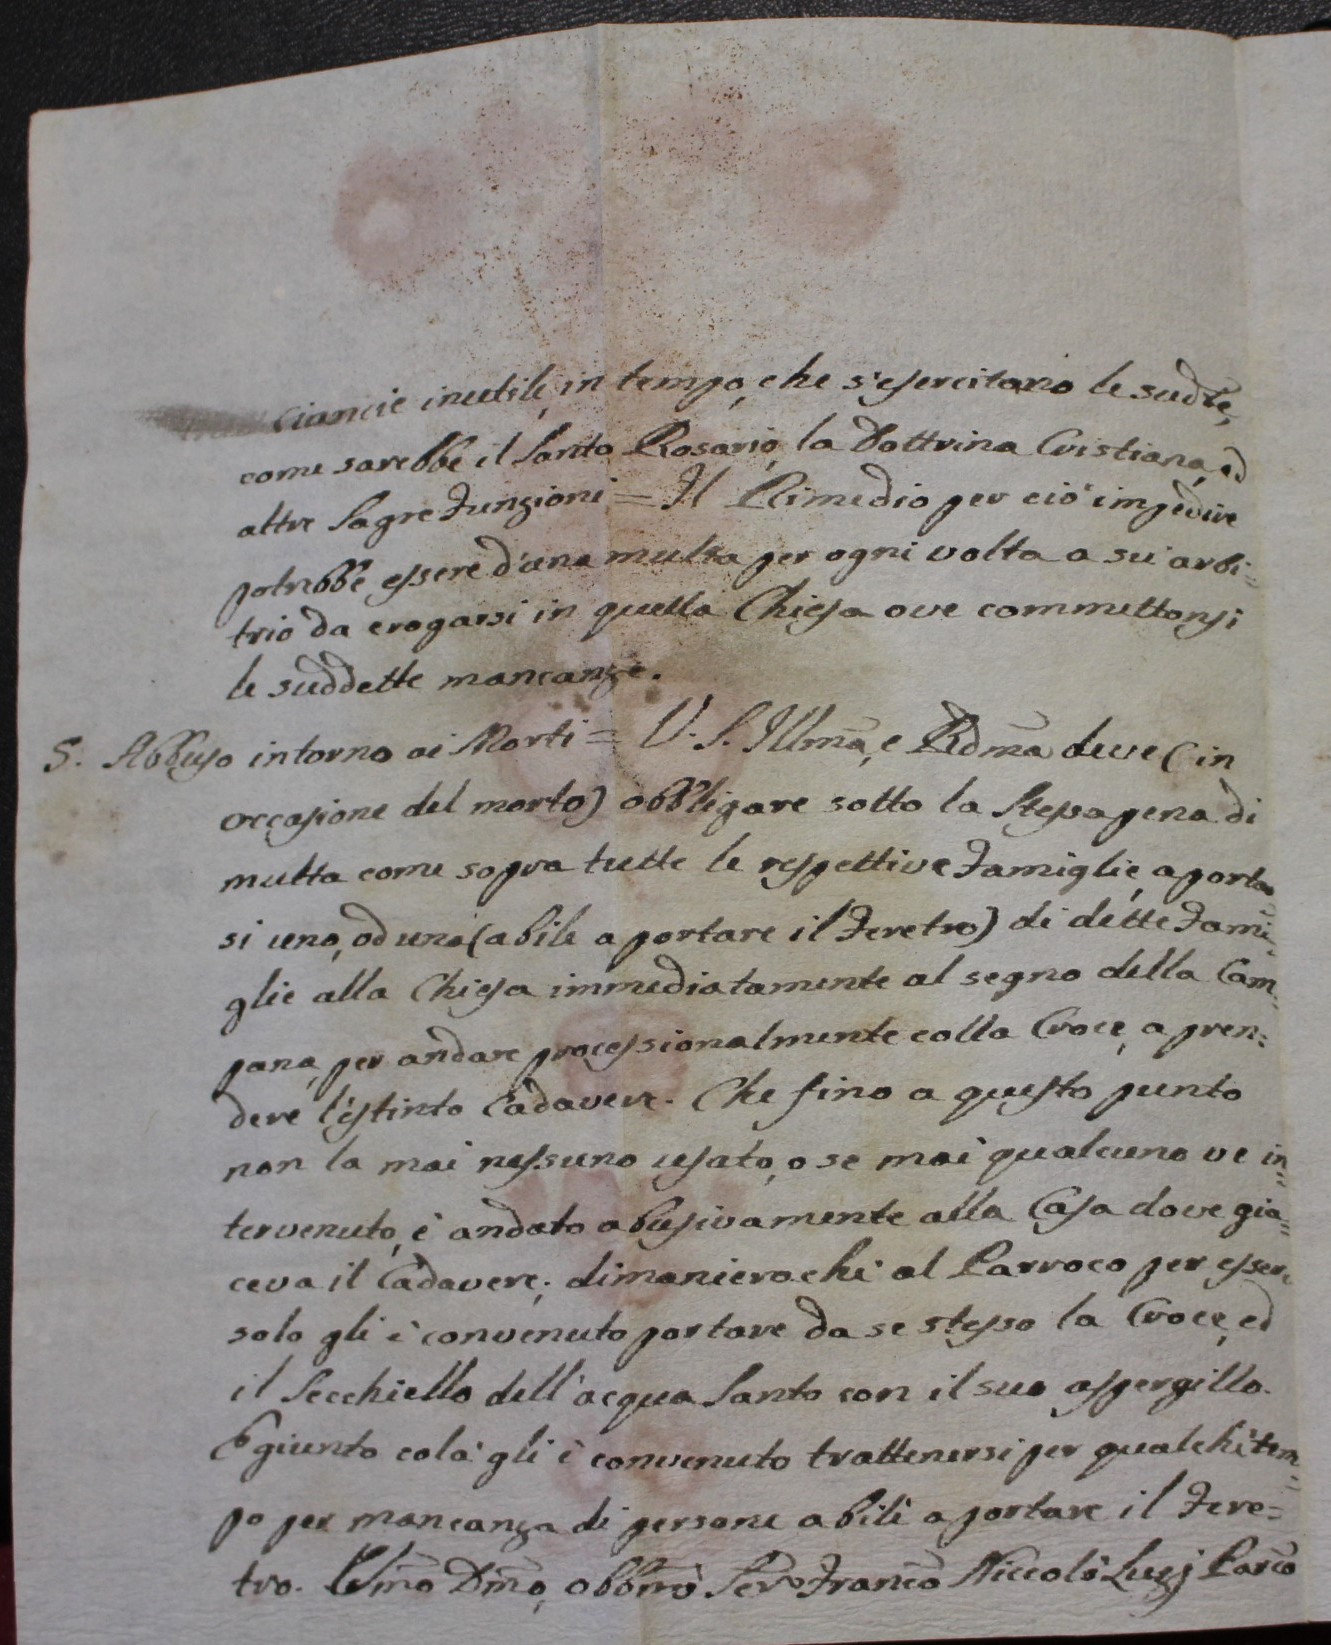 Ciancie inutili, in tempo, che s'esercitano le sudte,
come sarebbe il Santo Rosario, la Dottrina Cristiana, ed
altre Sagre Funzioni = Il Rimedio per ciò impedire
potrebbe essere d'una multa per ogni volta a su' arbi=
trio da erogarsi in quella Chiesa ove commettonsi
le suddette mancanze.
5. Abbuso intorno ai Morti = V. S. Illma, e Rdma deve (in
occasione del morto) obbligare sotto la stessa pena di
multa come sopra tutte le respettive Famiglie, a portar
si uno, od una (abile a portare il Feretro) di dette Fami=
glie alla Chiesa immediatamente al segno della Cam=
pana, per andare processionalmente colla Croce, a pren=
dere l'estinto Cadavere. Che fino a questo punto
non la mai nessuno usato, o se mai qualcuno ve in=
tervenuto, è andato abusivamente alla Casa dove gia=
ceva il Cadavere; dimanierachè al Parroco per esser
solo gli è convenuto portare da se stesso la Croce, ed
il Secchiello dell'acqua Santa con il suo aspergillo.
E giunto colà gli è convenuto trattenersi per qualche tem=
po per mancanza di persone abili a portare il Fere=
tro. Umo Dmo, obbmo Servo Franco Niccolò Luigj Parco